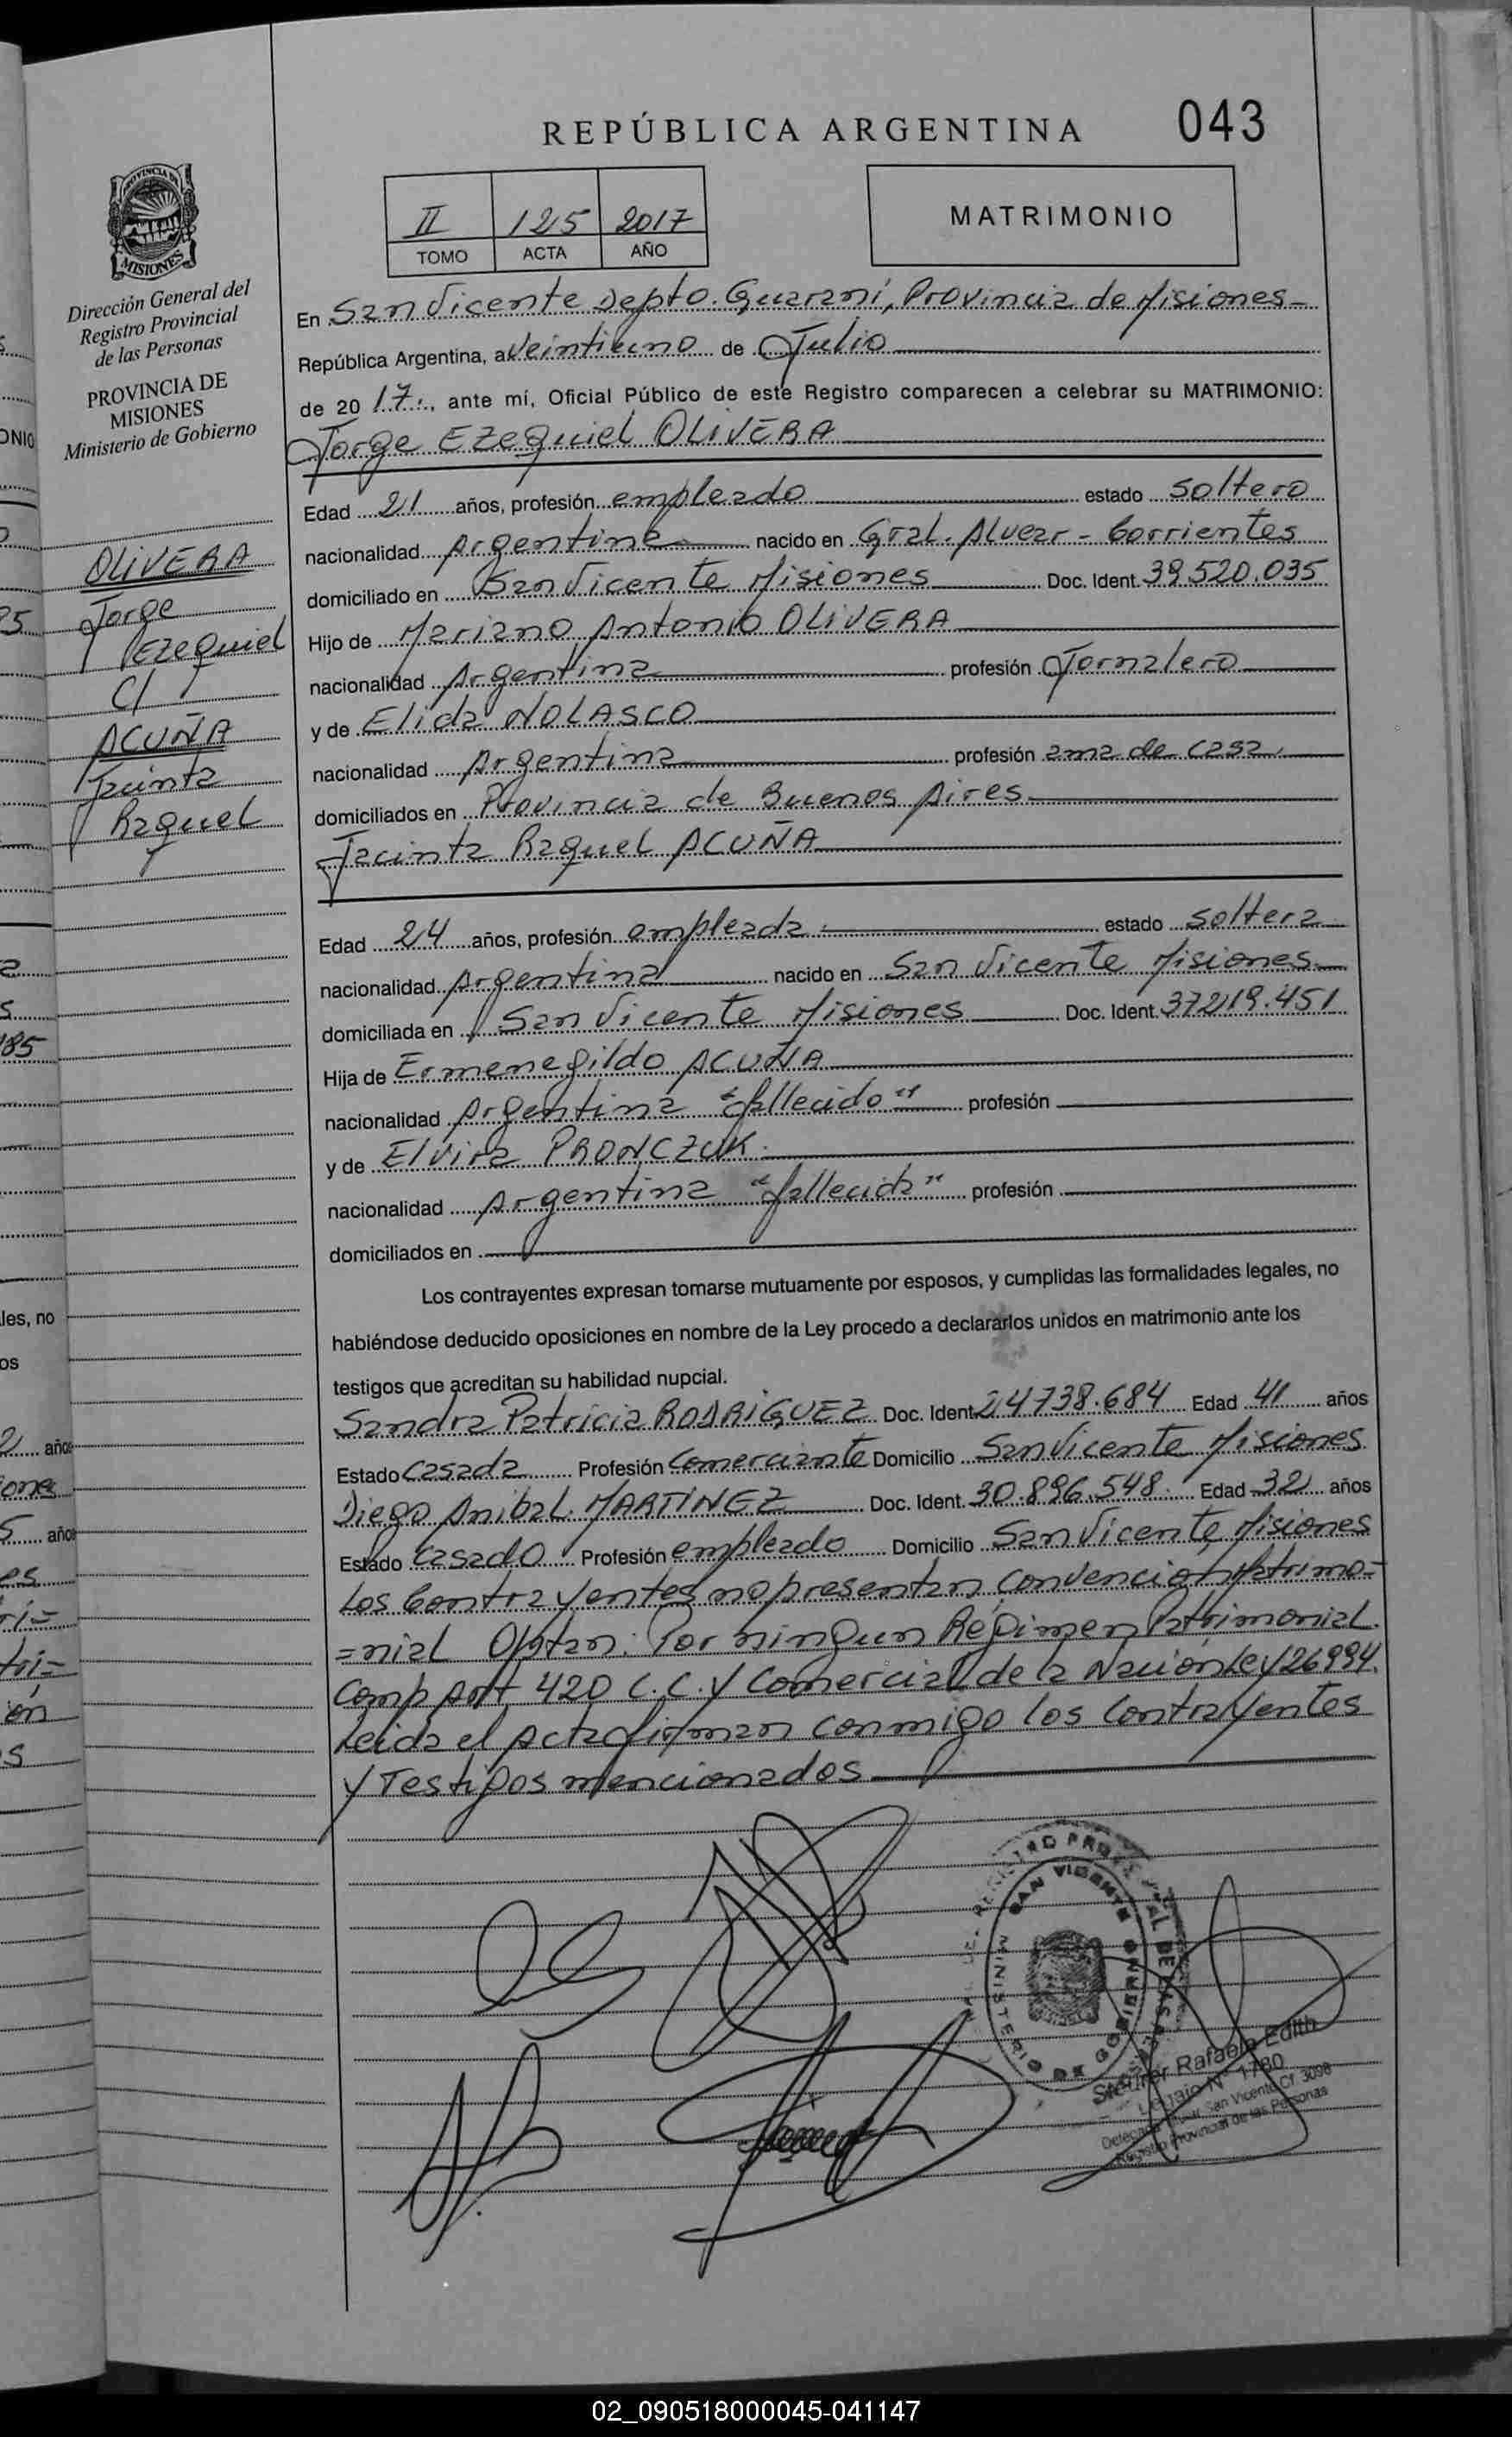 REPÚBLICA ARGENTINA 043
II 125 2017
TOMO ACTA AÑO
MATRIMONIO
PROVINCIA DE
MISIONES
Dirección General del
Registro Provincial
de las Personas
PROVINCIA DE
MISIONES
Ministerio de Gobierno
OLIVERA
Jorge
Ezequiel
C/
ACUÑA
Jacinta
Raquel
En San Vicente Depto. Guaraní, Provincia de Misiones
República Argentina, a Veintiuno de Julio
de 2017., ante mí, Oficial Público de este Registro comparecen a celebrar su MATRIMONIO:
Jorge Ezequiel OLIVERA
Edad 21 años, profesión empleado estado soltero
nacionalidad Argentina nacido en Gral. Alvear - Corrientes
domiciliado en San Vicente Misiones Doc. Ident. 39.520.035
Hijo de Mariano Antonio OLIVERA
nacionalidad Argentina profesión Jornalero
y de Elida NOLASCO
nacionalidad Argentina profesión ama de casa
domiciliados en Provincia de Buenos Aires
Jacinta Raquel ACUÑA
Edad 24 años, profesión empleada estado soltera
nacionalidad Argentina nacido en San Vicente Misiones
domiciliada en San Vicente Misiones Doc. Ident. 37219.451
Hija de Ermenegildo ACUÑA
nacionalidad Argentina "fallecido" profesión
y de Elvira PRONCZUK
nacionalidad Argentina "fallecida" profesión
domiciliados en
Los contrayentes expresan tomarse mutuamente por esposos, y cumplidas las formalidades legales, no
habiéndose deducido oposiciones en nombre de la Ley procedo a declararlos unidos en matrimonio ante los
testigos que acreditan su habilidad nupcial.
Sandra Patricia RODRIGUEZ Doc. Ident 24738.684 Edad 41 años
Estado casada Profesión Comerciante Domicilio San Vicente Misiones
Diego Anibal MARTINEZ Doc. Ident. 30.896.548. Edad 32 años
Estado casado Profesión empleado Domicilio San Vicente Misiones
Los Contrayentes no presentan convención patrimo=
=nial Optan: Por ningun Régimen Patrimonial.
Comp Art 420 C.C. y Comercial de la Nación Ley 26994.
Leida el Acta firman conmigo los Contrayentes
y Testigos mencionados
SAN VICENTE
MINISTERIO DE GOBIERNO
Rafaela Edith
Legajo N° 1780
San Vicente Cf. 3098
Registro Provincial de las Personas
02_090518000045-041147